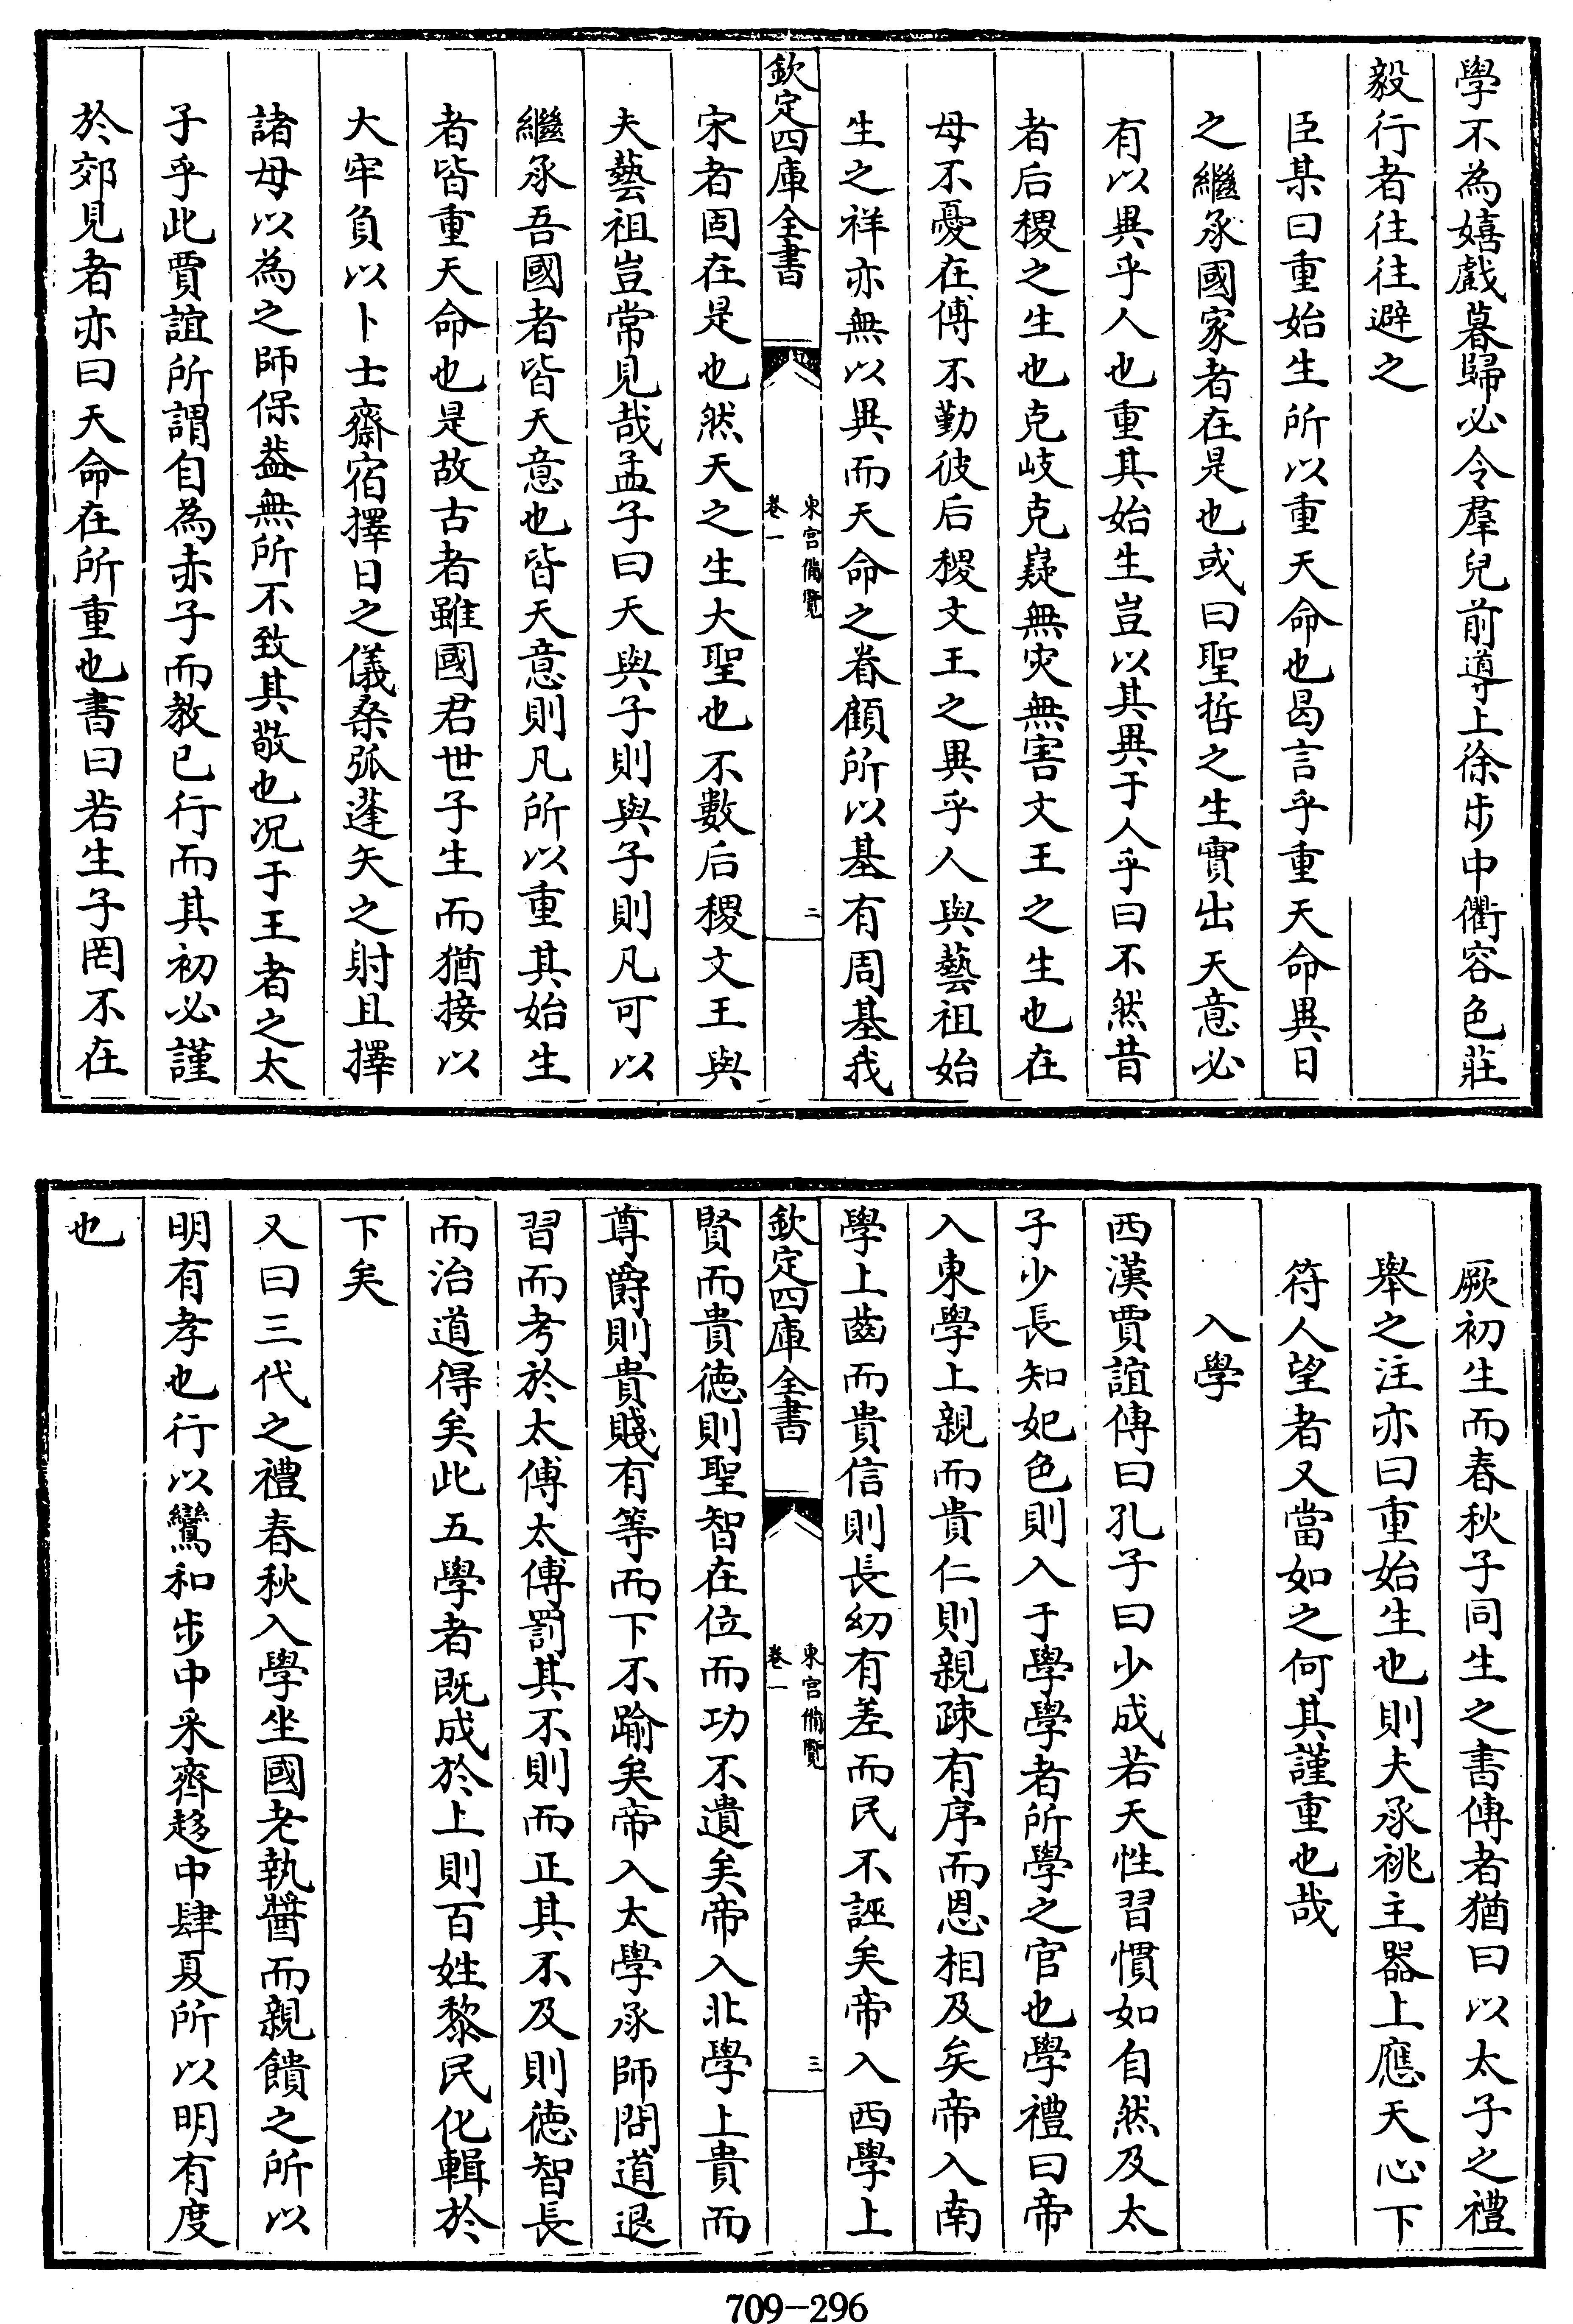 學不為嬉戲暮歸必令羣兒前導上徐步中衢容色莊
毅行者往往避之
臣某曰重始生所以重天命也曷言乎重天命異日
之繼承國家者在是也或曰聖哲之生實出天意必
有以異乎人也重其始生豈以其異于人乎曰不然昔
者后稷之生也克岐克嶷無灾無害文王之生也在
母不憂在傅不勤彼后稷文王之異乎人與藝祖始
生之祥亦無以異而天命之眷顧所以基有周基我
欽定四庫全書
東宮備覽
卷一
二
宋者固在是也然天之生大聖也不數后稷文王與
夫藝祖豈常見哉孟子曰天與子則與子則凡可以
繼承吾國者皆天意也皆天意則凡所以重其始生
者皆重天命也是故古者雖國君世子生而猶接以
大牢負以卜士齋宿擇日之儀桑弧蓬矢之射且擇
諸母以為之師保葢無所不致其敬也况于王者之太
子乎此賈誼所謂自為赤子而教已行而其初必謹
於郊見者亦曰天命在所重也書曰若生子罔不在
厥初生而春秋子同生之書傳者猶曰以太子之禮
舉之注亦曰重始生也則夫承祧主器上應天心下
符人望者又當如之何其謹重也哉
入學
西漢賈誼傳曰孔子曰少成若天性習慣如自然及太
子少長知妃色則入于學學者所學之官也學禮曰帝
入東學上親而貴仁則親疎有序而恩相及矣帝入南
學上齒而貴信則長幼有差而民不誣矣帝入西學上
欽定四庫全書
東宮備覽
卷一
三
賢而貴徳則聖智在位而功不遺矣帝入北學上貴而
尊爵則貴賤有等而下不踰矣帝入太學承師問道退
習而考於太傅太傅罰其不則而正其不及則徳智長
而治道得矣此五學者既成於上則百姓黎民化輯於
下矣
又曰三代之禮春秋入學坐國老執醬而親饋之所以
明有孝也行以鸞和步中采齊趍中肆夏所以明有度
也
709-296